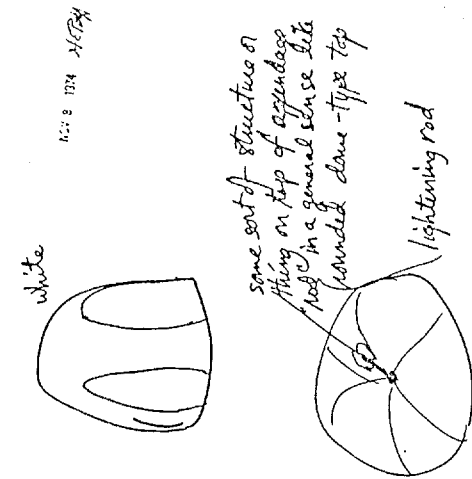 white
NOV 8 1974
some sort of structure or
thing on top of appendage
rod in a general sense like
rounded dome-type top
lightening rod